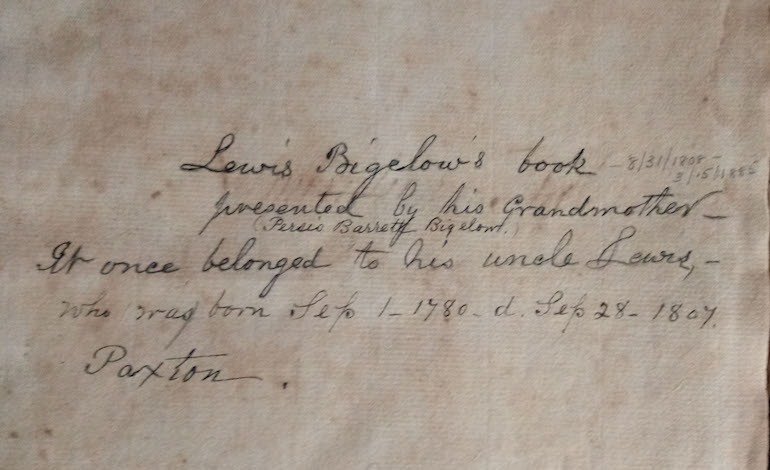 Lewis Bigelow's book – 8/31/1808 –
3/15/1885
presented by his Grandmother –
(Persis Barrett Bigelow.)
It once belonged to his uncle Lewis, –
who was born Sep 1 – 1780 – d. Sep 28 – 1807.
Paxton .